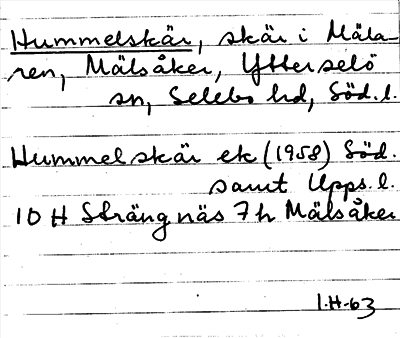 Hummelskär, skär i Mäla-
ren, Mälsåker, Ytterselö
sn, Selebo hd, Söd. l.
Hummelskär ek (1958) Söd.
samt Upps. l.
10 H Strängnäs 7 h Mälsåker
I.H-63